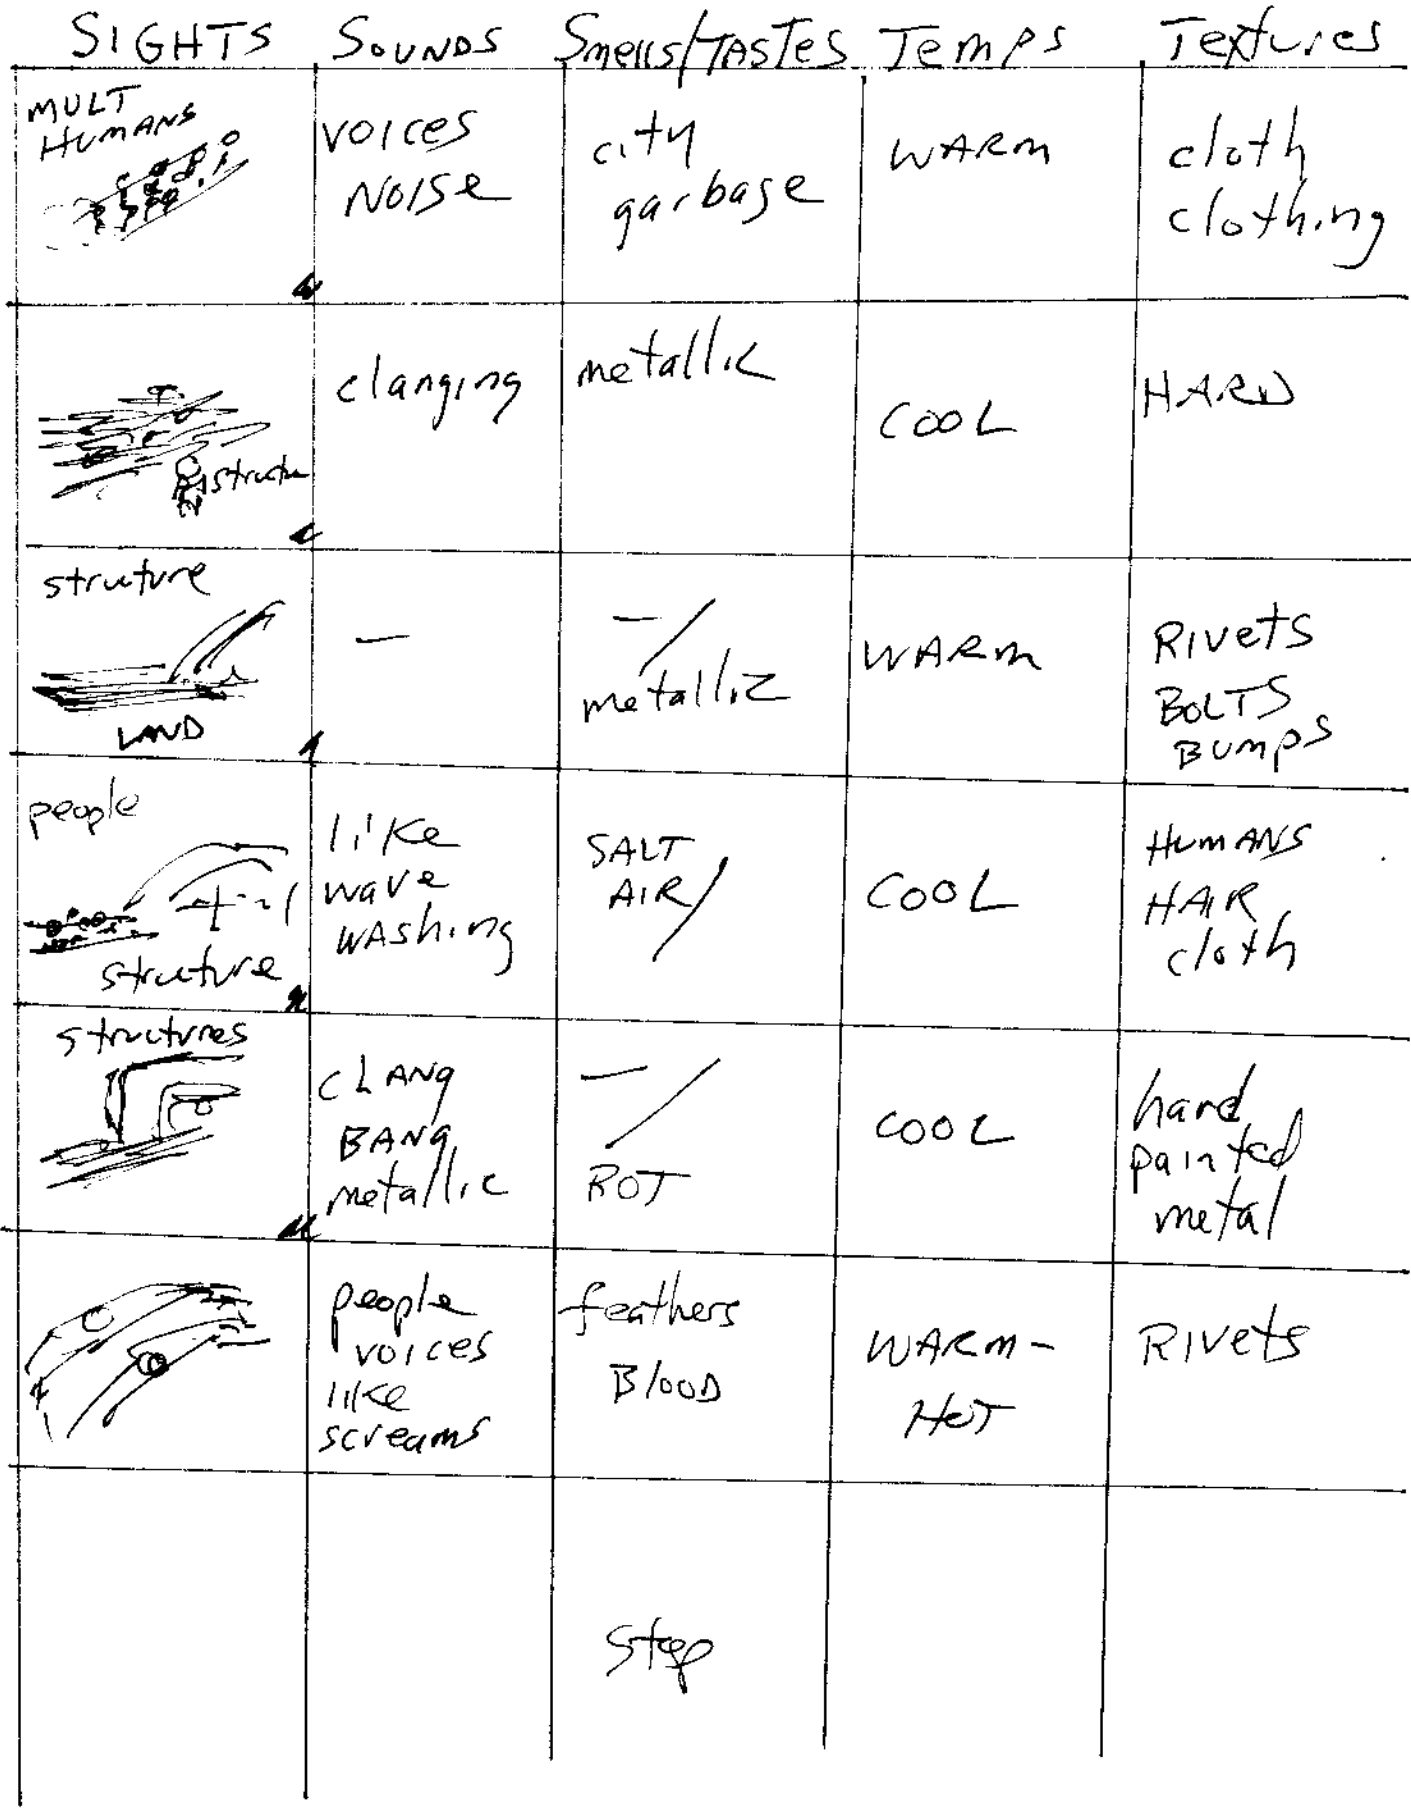 SIGHTS SOUNDS Smells/TASTES Temps Textures
MULT
HUMANS
VOICES
NOISE
city
garbage
WARM
cloth
clothing
structu
clanging
metallic
COOL
HARD
structure
LAND
—
— /
metallic
WARM
RIVETS
BOLTS
BUMPS
people
structure
like
wave
WAShing
SALT
AIR /
COOL
HUMANS
HAIR
cloth
structures
CLANG
BANG
metallic
— /
ROT
COOL
hard
painted
metal
people
voices
like
screams
feathers
BlOOD
WARM-
HOT
RIVETS
Stop